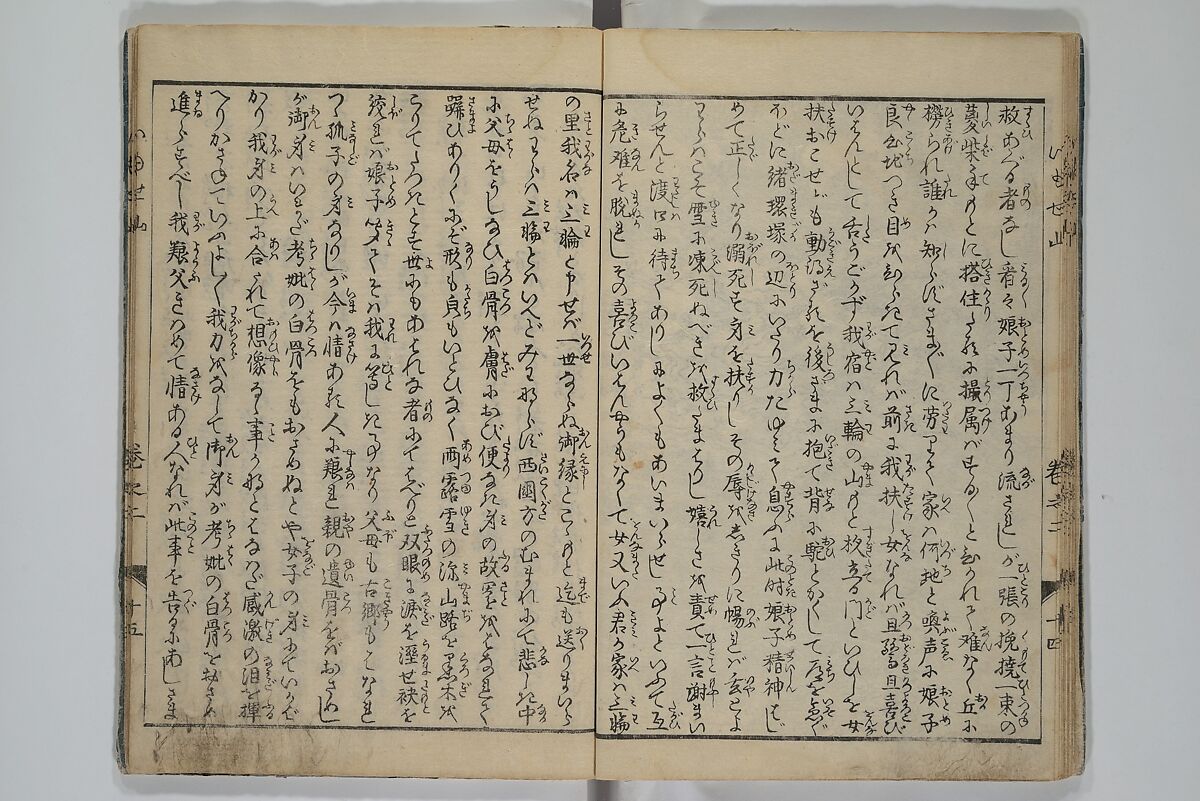 救あぐる者なし看々娘子一丁あまり流されしが一張の挽撓一束の
蔓柴手もとに搭住たるに撮属がまゝと引れて難なく丘に
搒られ誰かは知らずさま〴〵に労りて家は何地と喚声に娘子
良心地つき目をひらきて見れば前に我扶し女なれば且驚き且喜び
いはんとして舌うごかず我宿は三輪の山もと杉立る門といひしを女
扶おこせども動得ざるを後さまに抱て背に駝とかくして居を急ぐ
ほどに緒環塚の辺にいたり力たゆみて息ふ此時娘子精神はじ
めて正しくなり溺死を身を扶りしその辱をしきりに暢れば
わらはこそ雪に凍死ぬべきを救たまはりし嬉しさを責て一言謝まい
らせんと渡口に待てありしによくもあいまいらせし事よといふて互
に危難を脱れしその喜びいはんやうもなくて女又いふ君が家は三輪
の里我名は三輪と申せば一世ならぬ御縁とこゝもと迄も送りまいら
せぬわらは三輪とはいへどみわならず西国方のむまれにて悲しき中
に父母をうしなひ白骨を膚におび便なき身の故郷をはなれて
躃ひありくにぞ形も貞もいとひなく雨露雪の深山路を黒木を
こりてたつきとす世にもあはれな者にてはべりと双眼に涙を湮せ袂を
絞れば娘子つく〴〵そは我に等しき事なり父母も古郷もこゝなれ
ど孤子の身なりしが今は情ある人に養れ親の遺骨をばおさめし
が御身はいまだ考妣の白骨をもおさめぬとや女子の身にていかば
かり我身の上に合されて想像るゝ事なりとはなはだ感激の泪を揮
へりかさねていふはしく我力をなして御身が考妣の白骨をおさめ
進らすべし我養父きはめて情ある人なれば此事を告るにあしさま
いもせ山
巻之二
十四
いもせ山
巻之二
十五